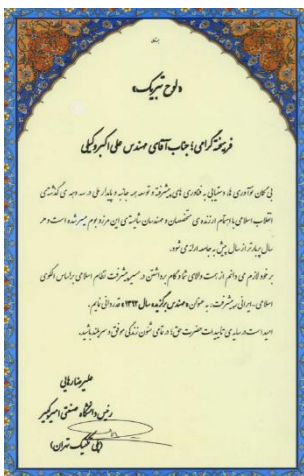 «لوح تبریک»
فرهیخته گرامی؛ جناب آقای مهندس علی اکبر وکیلی
بی گمان نوآوری ها، دستیابی به فناوری های پیشرفته و توسعه همه جانبه و پایدار ملی در سه دهه ی گذشته ی
انقلاب اسلامی با اهتمام ارزنده ی متخصصان و مهندسان شایسته ی این مرز و بوم میسر شده است و هر
سال پربارتر از سال پیش به جامعه ارائه می شود.
بر خود لازم می دانم از همت والای شما و گام برداشتن در مسیر پیشرفت نظام اسلامی براساس الگوی
اسلامی-ایرانی پیشرفت، به عنوان «مهندس برگزیده سال ۱۳۹۲» قدردانی نمایم.
امید است در سایه ی تأییدات حضرت حق؛ در تمامی شئون زندگی موفق و سربلند باشید.
علیرضا رهایی
رئیس دانشگاه صنعتی امیرکبیر
(پلی تکنیک تهران)